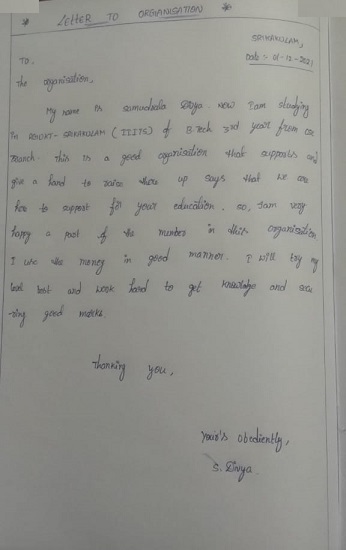 * LETTER TO ORGANISATION *
SRIKAKULAM,
Date :- 01-12-2021
To,
The organisation,
My name is Samudrala Divya. Now I am studying
In RGUKT-SRIKAKULAM (IIITS) of B.Tech 3rd year from
branch. This is a good organisation that supports and
give a hand to raise them up says that we are
here to support for your education. So, I am very
happy a part of the member in this organisation
I use the money in good manner. I will try my
level best and work hard to get knowledge and secu
-ring good marks.
Thanking you,
Your's obediently,
S. Divya.